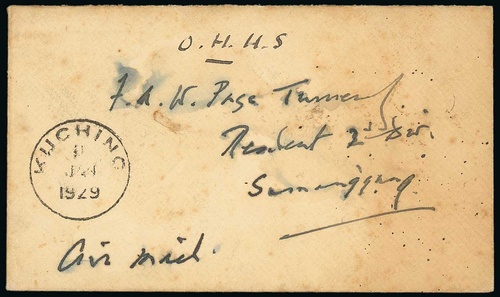 O.H.H.S
F.A.W. Page Turner
Resident 2nd Div.
Simanggang
KUCHING
11
JAN
1929
Air mail.